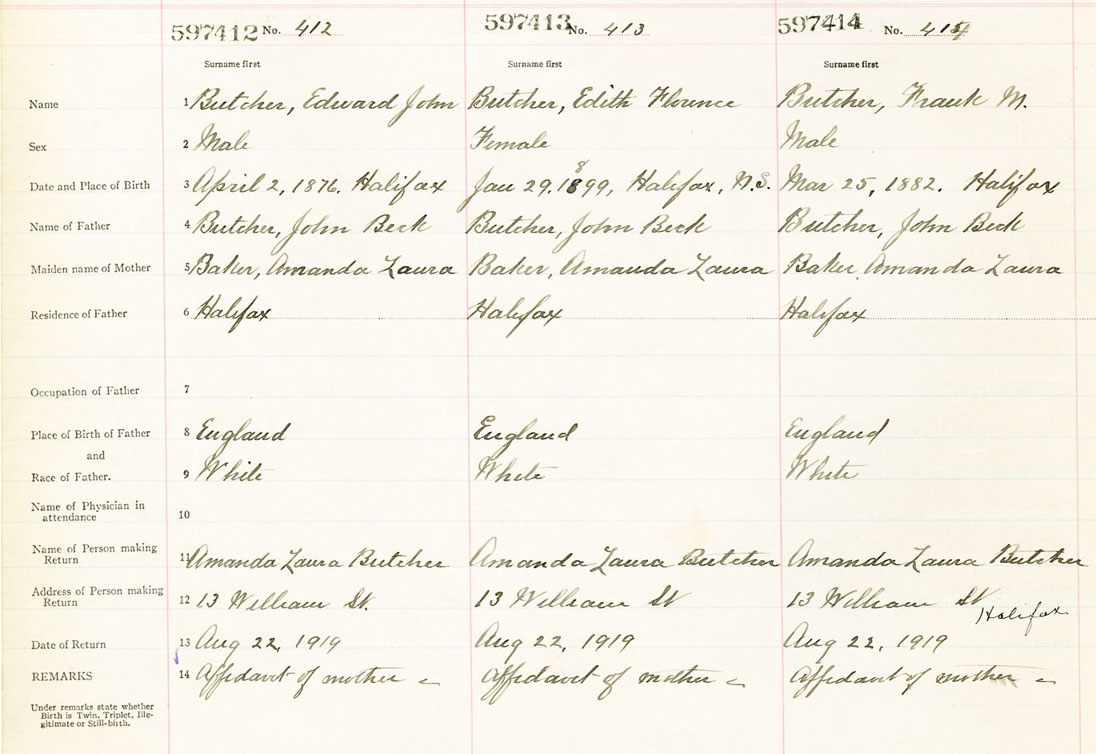 597412 No. 412 597413 No. 413 597414 No. 414
Surname first Surname first Surname first
Name 1 Butcher, Edward John Butcher, Edith Florence Butcher, Frank M.
Sex 2 Male Female Male
Date and Place of Birth 3 April 2, 1876. Halifax Jan 29. 1899, Halifax, N.S. Mar 25, 1882. Halifax
Name of Father 4 Butcher, John Beck Butcher, John Beck Butcher, John Beck
Maiden name of Mother 5 Baker, Amanda Laura Baker, Amanda Laura Baker, Amanda Laura
Residence of Father 6 Halifax Halifax Halifax
Occupation of Father 7
Place of Birth of Father 8 England England England
and
Race of Father. 9 White White White
Name of Physician in
attendance 10
Name of Person making
Return 11 Amanda Laura Butcher Amanda Laura Butcher Amanda Laura Butcher
Address of Person making
Return 12 13 William St. 13 William St 13 William St
Halifax
Date of Return 13 Aug 22, 1919 Aug 22, 1919 Aug 22, 1919
REMARKS 14 Affidavit of mother Affidavit of mother Affidavit of mother
Under remarks state whether
Birth is Twin, Triplet, Ille-
gitimate or Still-birth.